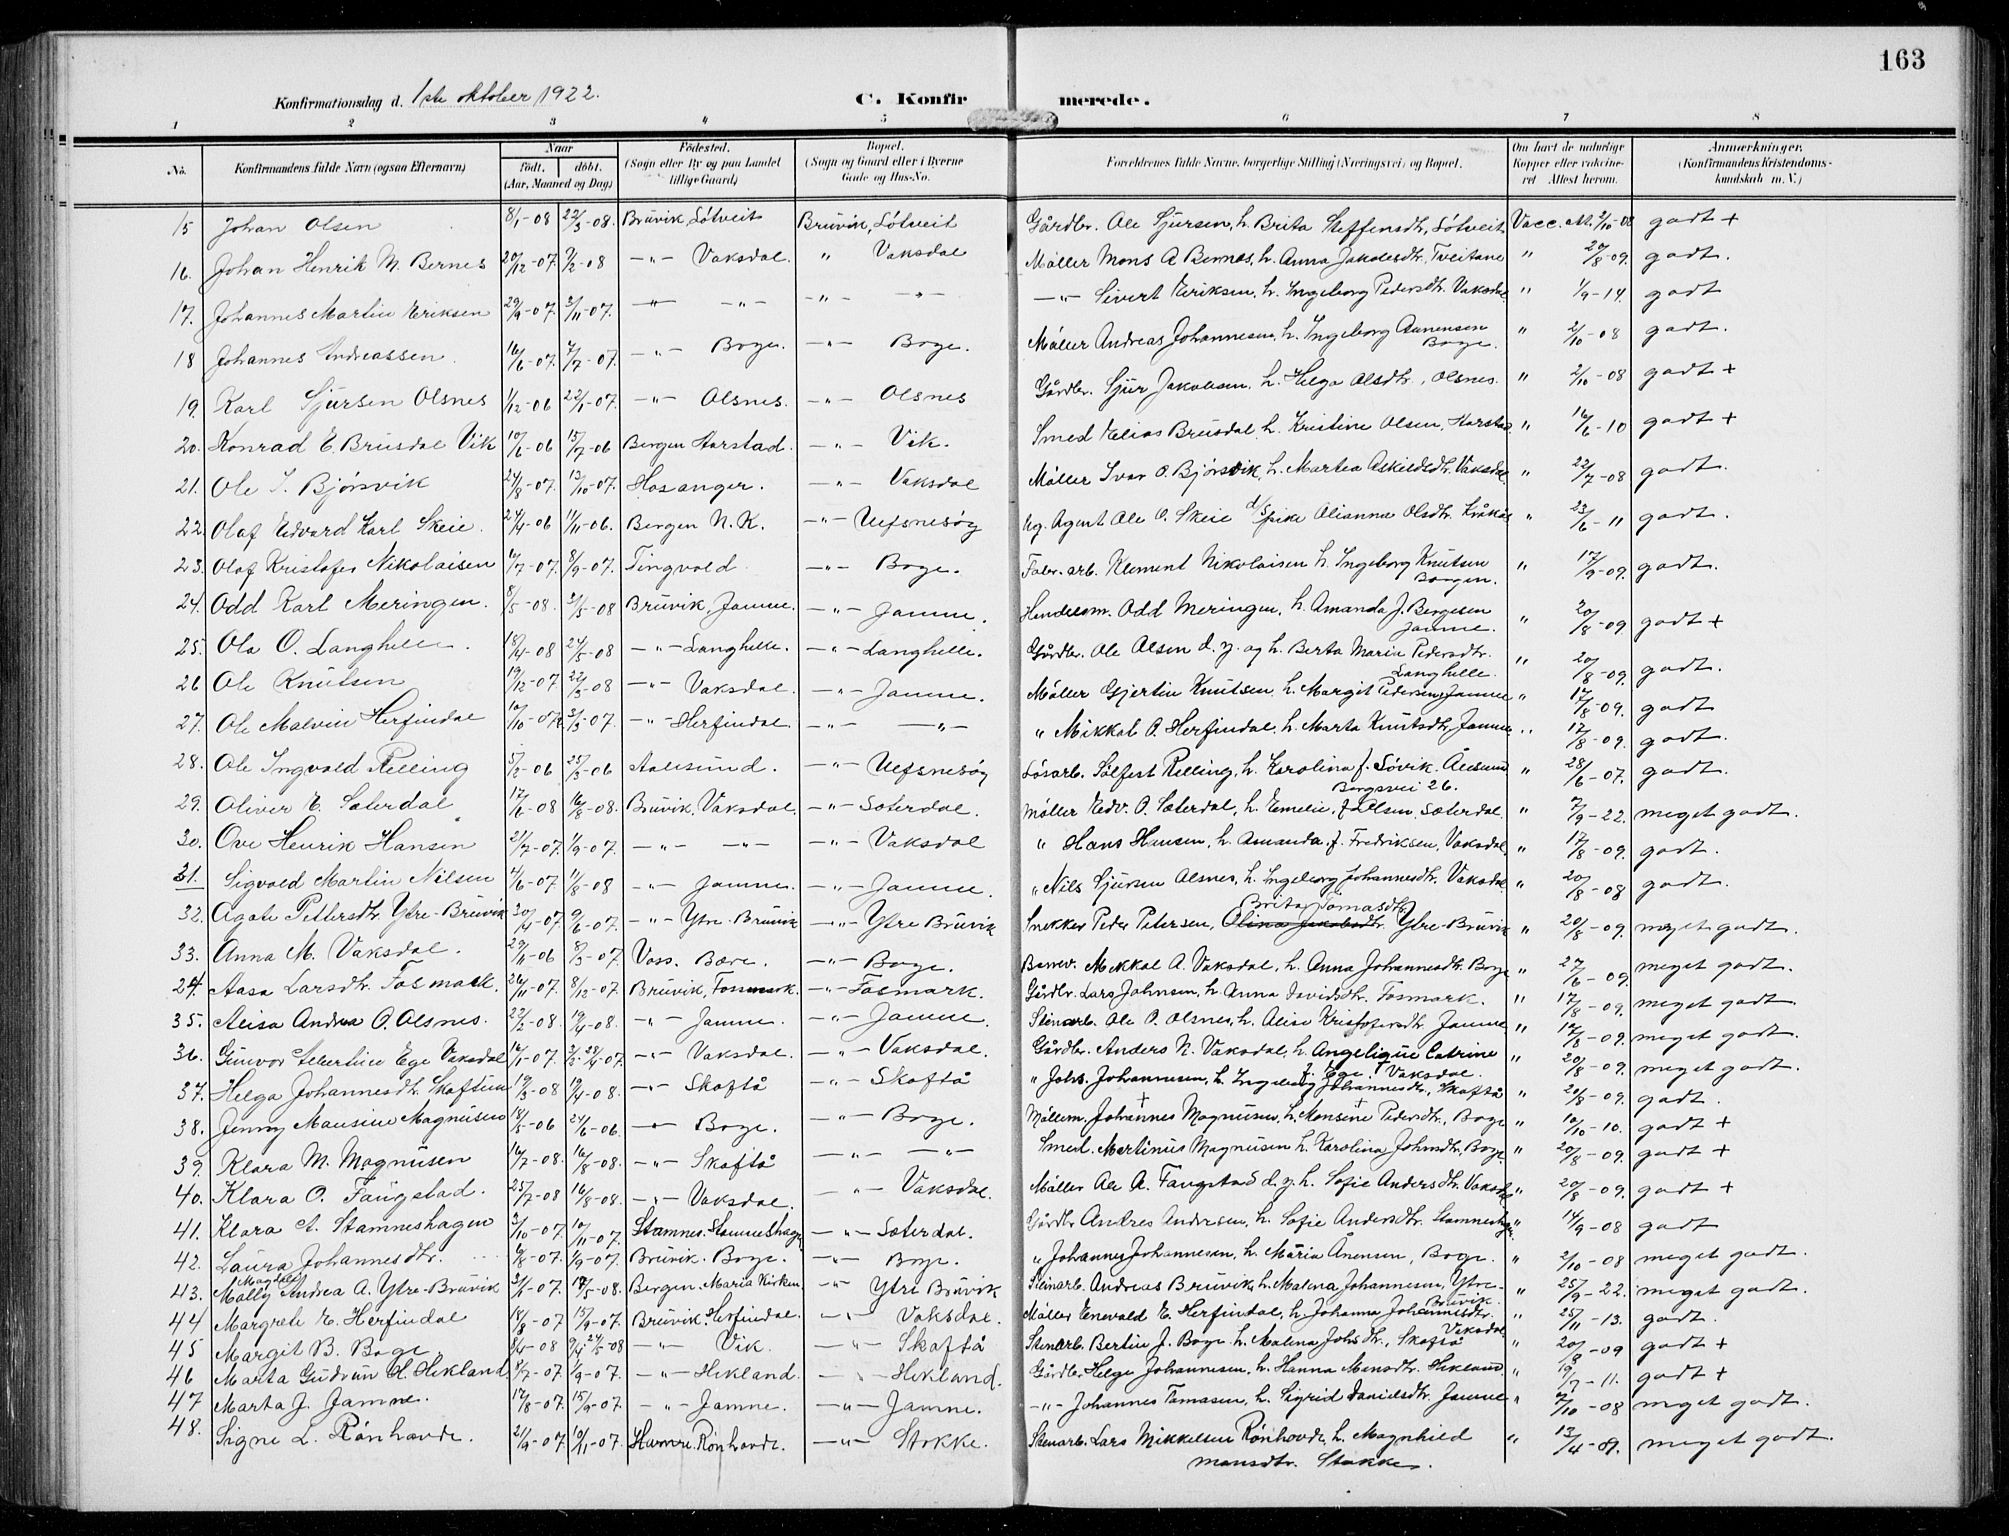 163
Konfirmationsdag d. 1ste oktober 1922.
C. Konfirmerede.
1 2 3 4 5 6 7 8
No. Konfirmandens fulde Navn (ogsaa Efternavn) Naar født. døbt. (Aar, Maaned og Dag) Fødested. (Sogn eller By og paa Landet tillige Gaard) Bopæl. (Sogn og Gaard eller i Byerne Gade og Hus-No. Forældrenes fulde Navne, borgerlige Stilling (Næringsvei) og Bopæl. Om havt de naturlige Kopper eller vaccineret Attest herom. Anmærkninger. (Konfirmandens Kristendomskundskab m. V.)
15 Johan Olsen 8/1-08 22/3-08. Bruvik Løtveit Bruvik, Løtveit Gårdbr. Ole Sjursen, h. Brita Steffensdtr, Løtveit Vacc. att. 2/10-08 godt +
16. Johan Henrik M. Bernes 20/12-07. 9/2-08 -"- Vaksdal. " Vaksdal Møller Mons A Bernes, h. Anna Jakobsdtr, Tveitane " 20/8-09. godt.
17. Johannes Martin Eriksen 29/9-07. 3/11-07. -"- -"- -"- -"- -"- Sivert Eriksen, h. Ingeborg Pedersdtr. Vaksdal " 1/9-14. godt
18 Johannes Andreassen. 16/6-07. 7/7-07. -"- Boge. -"- Boge. Møller Andreas Johannesen, h. Ingeborg Aunensen Boge. " 2/10-08 godt.
19. Karl Sjursen Olsnes 1/12-06 22/1-07. -"- Olsnes. -"- Olsnes Gårdbr. Sjur Jakobsen, h. Helga Olsdtr., Olsnes. " 2/10-08 godt +
20. Konrad E. Brusdal Vik 10/6-06 15/7-06 Bergen Harstad -"- Vik. Smed Elias Brusdal, h. Kristine Olsen, Harstad " 16/6-10 godt +
21. Ole I. Bjørsvik 24/8-07. 13/10-07. Hosanger. -"- Vaksdal Møller Ivar O. Bjørsvik, h. Martea Askildsdtr. Vaksdal " 22/7-08 godt.
22. Olaf Edvard Karl Skeie. 24/4-06 11/11-06. Bergen N. K. -"- Ulfsnesøy Ug. Agent Ole O. Skeie d/s pike Olianna Olsdtr. Kråkås " 23/6-11 godt.
23. Olaf Kristofer Nikolaisen 16/7-07. 8/9-07. Tingvold -"- Boge. Fabr. arb. Klement Nikolaisen h. Ingeborg Knutsen Bergen. " 17/9-09. godt.
24. Odd Karl Meringen. 8/5-08. 31/5-08 Bruvik, Jamne. -"- Jamne. Handelsm. Odd Meringen, h. Amanda J. Bergesen Jamne. " 20/8-09 godt +
25. Ola O. Langhelle. 18/4-08 24/5-08 -"- Langhelle. -"- Langhelle. Gårdbr. Ole Olsen d. y. og h. Berta Marie Pedersdtr. Langhelle. " 20/8-09. godt.
26 Ole Knutsen 19/12-07 22/3-08 -"- Vaksdal. -"- Jamne. Møller Gjertin Knutsen, h. Margit Pedersen, Jamne " 17/8-09. godt
27. Ole Malvin Herfindal 3/3-07. -"- Herfindal -"- -"- " Mikkal O. Herfindal, h. Marta Knutsdtr, Jamne " 17/8-09. godt.
28. Ole Ingvald Relling 5/2-06 25/3-06 Aalesund. -"- Ulfsnesøy Løsarb. Sølfest Relling, h. Karolina f. Søvik. Ålesund Borgsvei 26. " 28/6-07. godt.
29. Oliver E. Sæterdal 17/6-08 16/8-08. Bruvik, Vaksdal. -"- Sæterdal. Møller Edv. O. Sæterdal, h. Emelie, f. Olsen, Sæterdal. " 7/9-22. meget godt.
30. Ove Henrik Hansen 21/7-07. 1/9-07. -"- -"- -"- Vaksdal " Hans Hansen, h. Amanda, f. Fredriksen, Vaksdal, " 17/8-09. godt.
31. Sigvald Martin Nilsen 4/6-07. 11/8-08 -"- Jamne. -"- Jamne. " Nils Sjursen Olsnes, h. Ingeborg Johannesdtr. Vaksdal " 20/8-08 godt.
32. Agate Pettersdtr. Ytre-Bruvik 30/4-07 9/6-07. -"- Ytre-Bruvik -"- Ytre Bruvik Snekker Peder Petersen, Brita Tomasdtr. Olina Jakobsdtr. Ytre-Bruvik " 20/8-09. meget godt.
33. Anna M. Vaksdal. 29/11-06 8/3-07. Voss. Bære. -"- Boge. Barrev. Mikkal A. Vaksdal, h. Anna Johannesdtr. Boge " 27/6-09. meget godt.
24. Aasa Larsdtr. Fosmark. 26/11-07. 8/12-07. Bruvik, Fossmark. -"- Fosmark. Gårdbr. Lars Johnsen, h. Anna Davidsdtr. Fosmark. " 17/8-09. meget godt.
35. Alisa Andrea O. Olsnes. 22/2-08. 19/4-08. -"- Jamne. -"- Jamne. Stenarb. Ole O. Olsnes, h. Alise Kristofersdtr. Jamne " 17/8-09. meget godt.
36. Gunvor Albertine Ege Vaksdal 16/1-07. 3/2. 28/4-07. -"- Vaksdal. -"- Vaksdal. Gårdbr. Anders N. Vaksdal, h. Angelique Catrine f. Ege, Vaksdal. " 20/8-09. meget godt.
37. Helga Johannesdtr. Skaftun 19/3-08 19/4-08. -"- Skaftå -"- Skaftå " Johs. Johannesen, h. Ingeborg Johannesdtr., Skaftå " 20/8-09. godt.
38. Jenny Mansine Magnusen 18/5-06 24/6-06. -"- Boge. -"- Boge. Møllem. Johannes Magnusen, h. Monsine Pedersdtr., Boge " 10/10-10. godt +
39. Klara M. Magnusen 16/7-08. 16/8-08. -"- Skaftå -"- -"- Smed. Martinus Magnusen h. Karolina Johnsdtr. Boge " 20/8-09. godt +
40. Klara O. Faugstad. 25/7-08 16/8-08. -"- Vaksdal. -"- Vaksdal. Møller Ole A. Faugstad d. y. h. Sofie Andersdtr. Vaksdal " 20/8-09. godt +
41. Klara A. Stamneshagen 3/10-07. 10/11-07. Stamnes. Stamneshagen -"- Sæterdal. Gårdbr. Andres Andersen, h. Sofie Andersdtr. Stamneshagen " 14/9-08 godt
42. Laura Johannesdtr. 6/8-07. 1/9-07. Bruvik. Boge. -"- Boge. " Johannes Johannesen, h. Maria Ånensen, Boge. " 2/10-08 meget godt.
43. Molly Magdal Andrea A. Ytre-Bruvik 17/5-08. Bergen. Maria Kirken -"- Ytre Bruvik Stenarb. Andreas Bruvik, h. Malena Johannesen, Ytre-Bruvik. " 25/9-22. meget godt.
44 Margrete E. Herfindal 18/8-07 15/9-07. Bruvik. Herfindal. -"- Vaksdal. Møller Enevald E. Herfindal, h. Johanna Johannesdtr. Vaksdal " 25/11-13. godt.
45 Margit B. Boge 8/4-08 9/4 24/5-08 -"- Vik. -"- Skaftå Stenarb. Bertin J. Boge h. Malena Johsdtr., Skaftå " 20/8-09 godt +
46 Marta Gudrun H. Hekland. 8/7-07. 1/9-07. -"- Hekland. -"- Hekland. Gårdbr. Helge Johannesen, h. Hanna Monsdtr. Hekland " 19/7-11. godt +
47 Marta J. Jamne. 17/8-07. 15/9-07. -"- Jamne. -"- Jamne. -"- Johannes Tomasen, h. Sigrid Danielsdtr. Jamne " 2/10-08 meget godt.
48. Signe L. Rønhovde. 21/9-07. 10/11-07. Hamre. Rønhovde. -"- Stokke. Stenarb. Lars Mikkelsen Rønhovde, h. Magnhild Monsdtr. Stokke. " 13/4-09. meget godt.